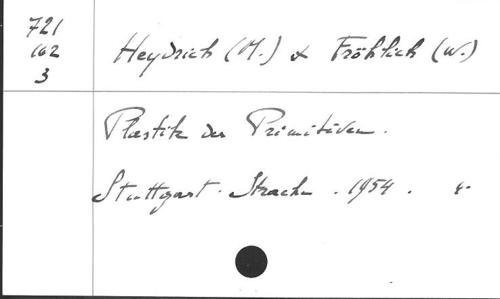 721
162
3
Heydrich (M.) & Fröhlich (W.)
Plastik der Primitiven.
Stuttgart. Strache. 1954. 8.